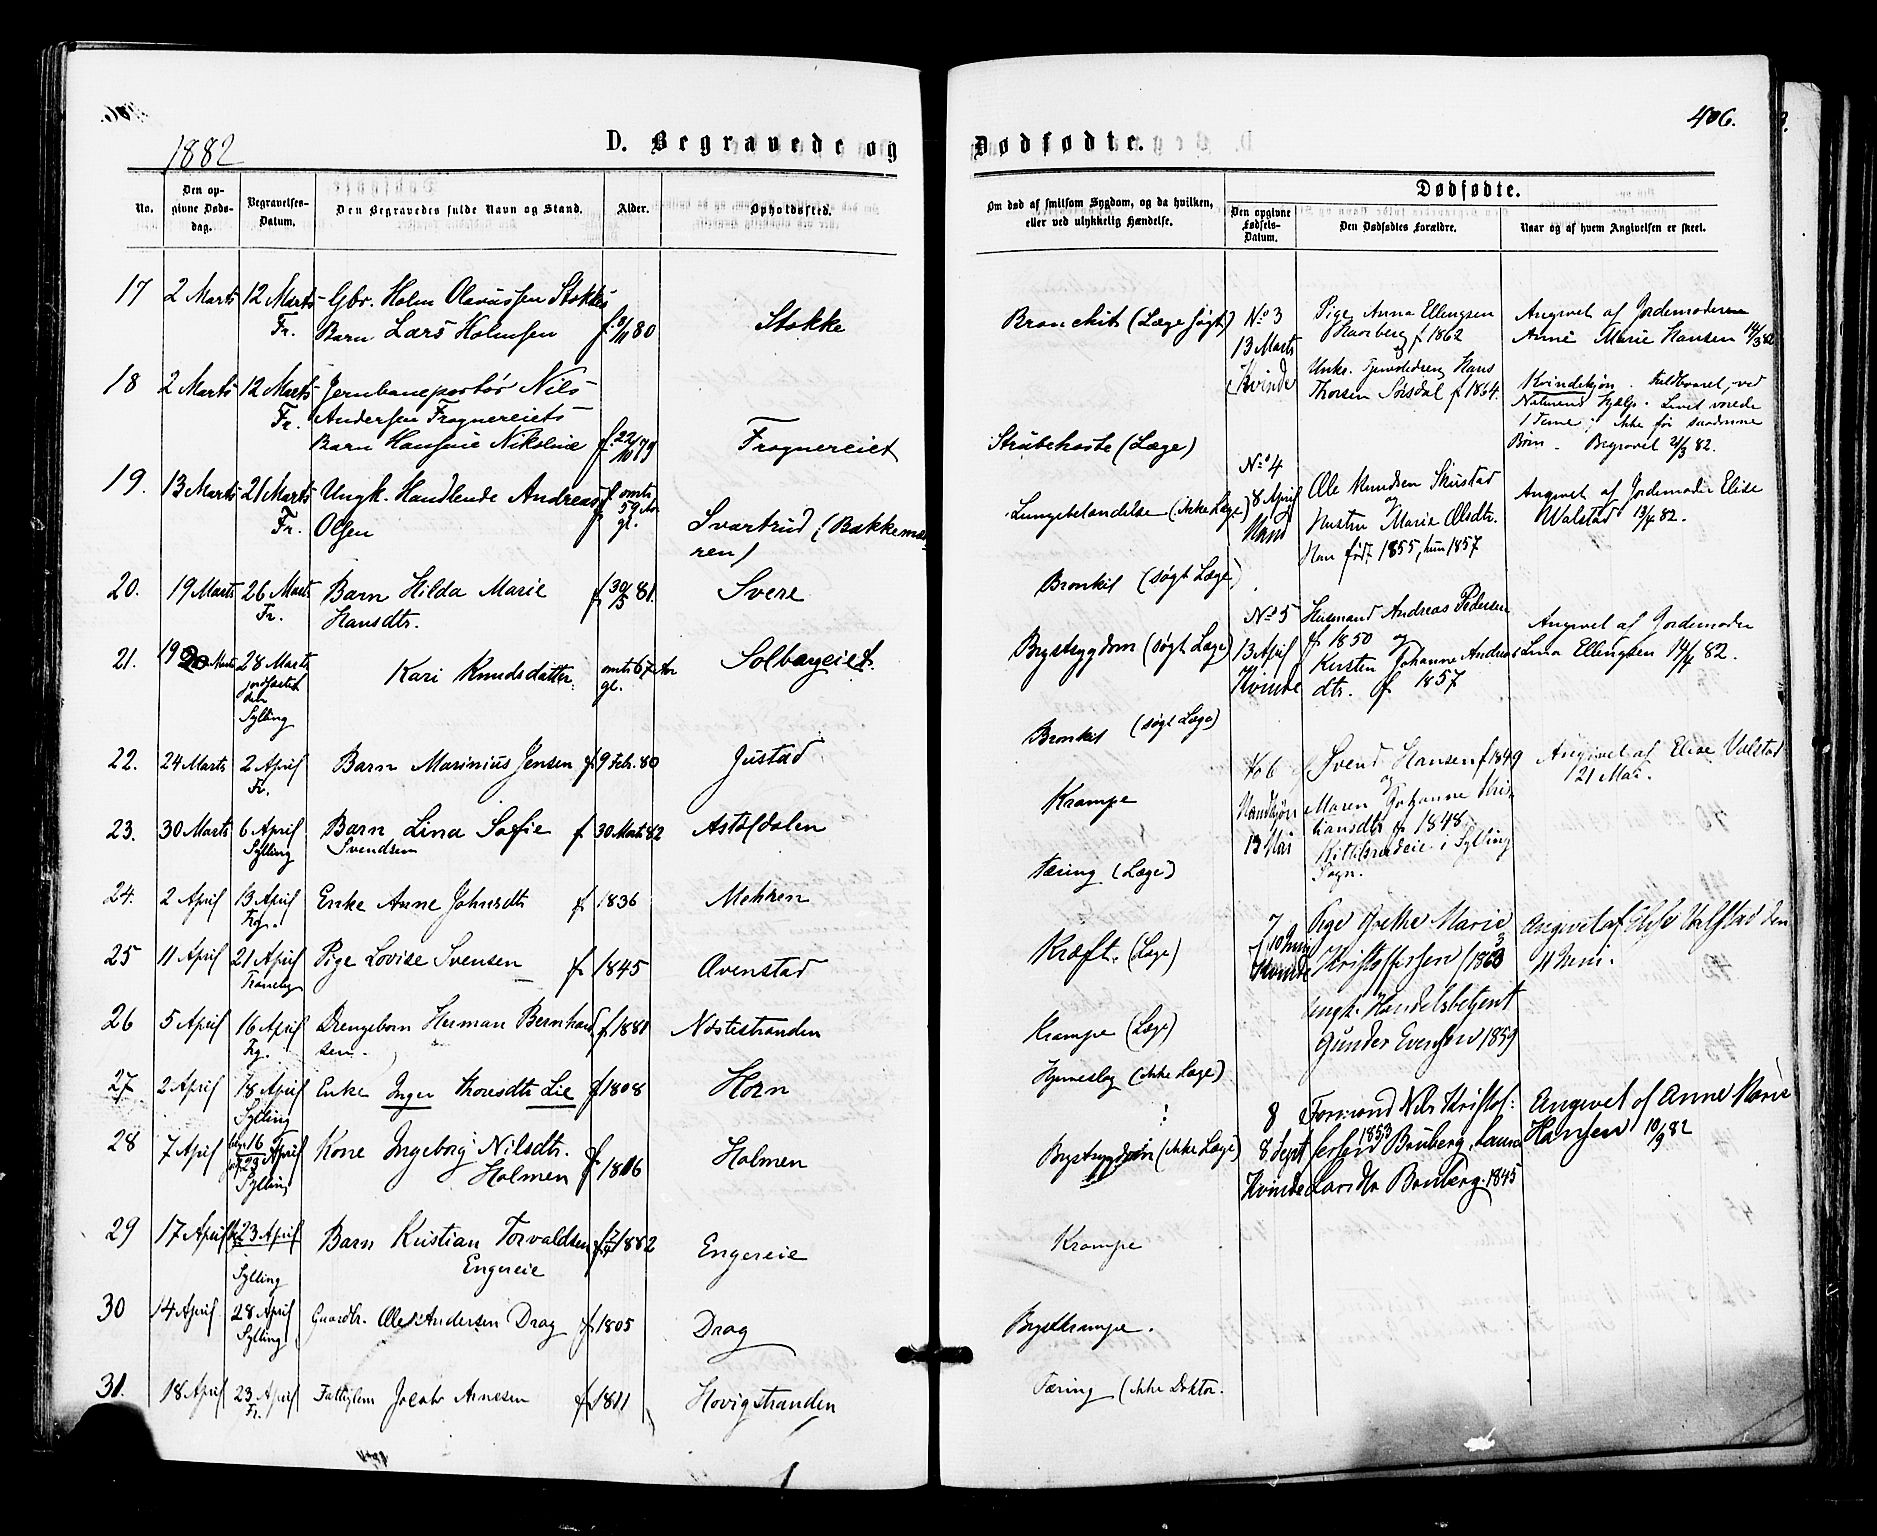 406.
1882
D. Begravede og Dødfødte.
No.
Den opgivne Døds-dag.
Begravelses-Datum.
Den Begravedes fulde Navn og Stand.
Alder.
Opholdssted.
Om død af smitsom Sygdom, og da hvilken,
eller ved ulykkelig Hændelse.
Dødfødte.
Den opgivne Fødsels-Datum.
Den Dødfødtes Forældre.
Naar og af hvem Angivelsen er skeet.
17 2 Marts 12 Marts Gbr. Holm Olavussen Stokkes
Fr. Barn Lars Holmsen f. 80 Stokke
18 2 Marts 12 Marts Jernbaneportør Nils
Fr. Andersen Frognereiets
Barn Hansine Nikoline f. 22/10 79 Frognereiet
19. 13 Marts 21 Marts Ungk. Handlende Andreas omtr. 59 Aar gl.
Fr. Olsen Svartrud (Bakkemø-
ren)
20. 19 Marts 26 Marts Barn Hilda Marie f 30/5 81. Svere
Fr. Hansdtr.
21. 28 Marts Kari Knudsdatter omtr 67 Aar gl. Solbergeiet.
Sylling
22. 24 Marts 2 April Barn Marinius Jensen f. 9 Febr. 80 Justad
Fr.
23. 30 Marts 6 April Barn Lina Sofie f 30 Mart. 82
Sylling Svendsen
24. 2 April 13 April Enke Anne Johnsdtr f 1836 Mehren
Frg.
25 11 April 21 April Pige Lovise Svensen f 1845 Ovenstad
Traneby
26 5 April 16 April Drengebarn Herman Bernhard f 1881 Næstestranden
Frg. sen.
27 2 April 18 April Enke Inger Thoresdtr Lie f 1808 Horn
Sylling
28 7 April 16 April Kone Ingeborg Nilsdtr.
Sylling Holmen f 1816 Holmen
29 17 April 23 April Barn Kristian Torvaldsen 1882 Engereie
Sylling Engereie
30 14 April 28 April Gaardbr. Ole Andersen Drag f 1805 Drag
Sylling
31. 18 April 23 April Fattiglem Jacob Arnesen f 1811 Hovigstranden
Fr.
Bronchit (Læge søgt)
Strubehoste (Læge)
Lungebetændelse (ikke Læge)
Bronkit (søgt Læge)
Brystsygdom (søgt Læge)
Bronkit (søgt Læge)
Krampe
Tæring (Læge)
Kræft. (Læge)
Krampe (Læge)
Hjerneslag (ikke Læge)
Brystsygdom (ikke Læge)
Krampe
Brystkrampe.
Tæring (ikke Doktor.
No 3
13 Marts
Kvinde
Pige Anna Ellingsen
f 1862
og
Ungk. Hans
Thorsen Sørsdal f 1864.
Angivet af Jordemoderen
Anne Marie Hansen 14/3 82
Kvindekjøn. Fuldbaaret, ved
Naturens Hjælp. Livet varede
1 Time; ikke før saadanne
Børn. Begravet 21/3 82.
No 4
8 April
Mand
Ole Knudsen Skustad
og
Hustru Maria Olsdtr.
Han født 1855, hun 1857
Angivet af Jordemoder Elise
Walstad 13/4 82.
No 5
13 April
Kvinde
Husmand Andreas Pedersen
f 1850 og
Kirsten Johanne Andreas
dtr. f 1857
Angivet af Jordemoder
Lina Ellingsen 14/4 82.
No 6
Mandkjøn
13 Mai
Svend Hansen f 1849
og
Maren Johanne Kris
tiansdtr f 1848.
i Sylling
Sogn.
Angivet af Elise Valstad
21 Mai.
7
10 Juni
Kvinde
Pige Grethe Marie
Kristoffersen f 1863
Ungk. Handelsbetjent
Gunder Evensen 1859
Angivet af Elise Valstad den
11 Juni.
8
8 Sept
Kvinde
Formand Nils Kristof:
fersen 1853 Bruberg, Laura
Larsdtr Bruberg. 1845
Angivet af Anne Marie
Hansen 10/9 82